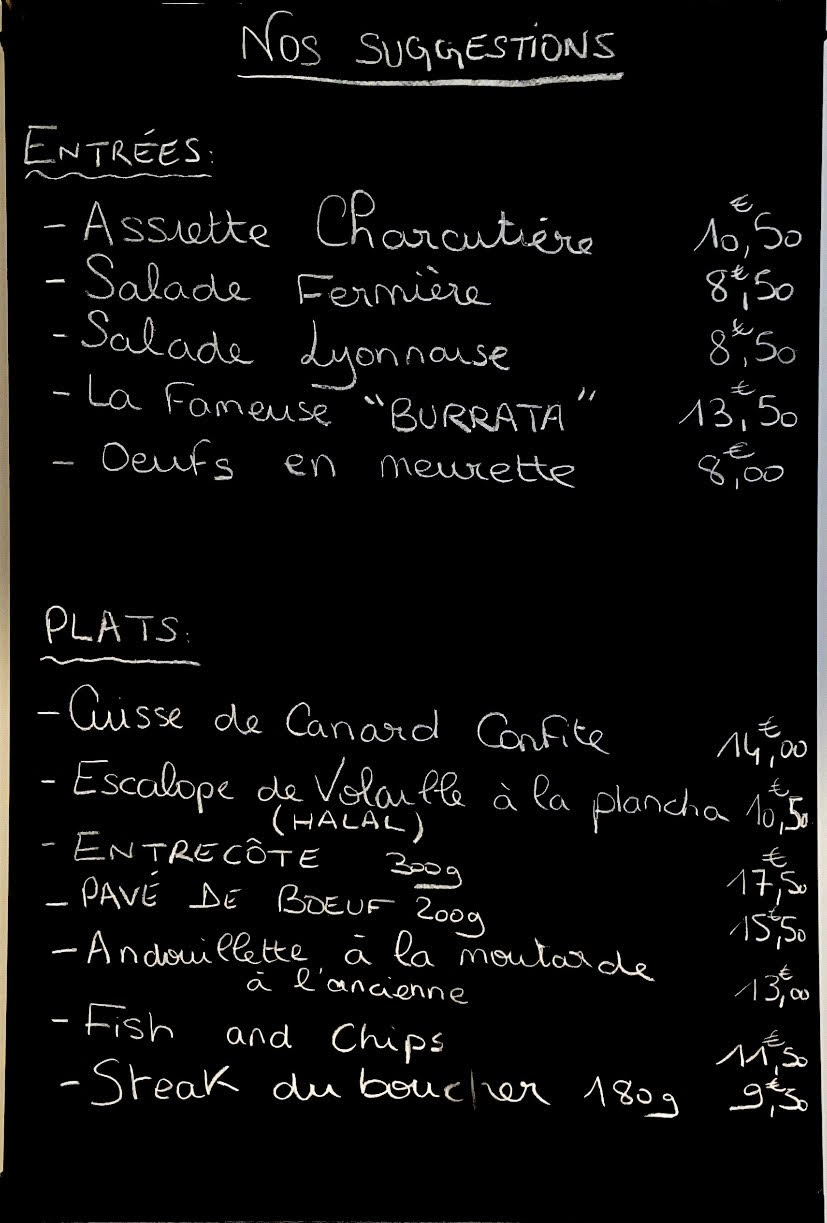 NOS SUGGESTIONS
ENTRÉES:
- Assiette Charcutière 10,€50
- Salade Fermière 8,€50
- Salade Lyonnaise 8,€50
- La Fameuse "BURRATA" 13,€50
- Oeufs en meurette 8,€00
PLATS:
- Cuisse de Canard Confite 14,€00
- Escalope de Volaille à la plancha 10,€50
(HALAL)
- ENTRECÔTE 300g 17,€50
- PAVÉ DE BOEUF 200g 15,€50
- Andouillette à la moutarde
à l'ancienne 13,€00
- Fish and Chips 11,€50
- Steak du boucher 180g 9,€50